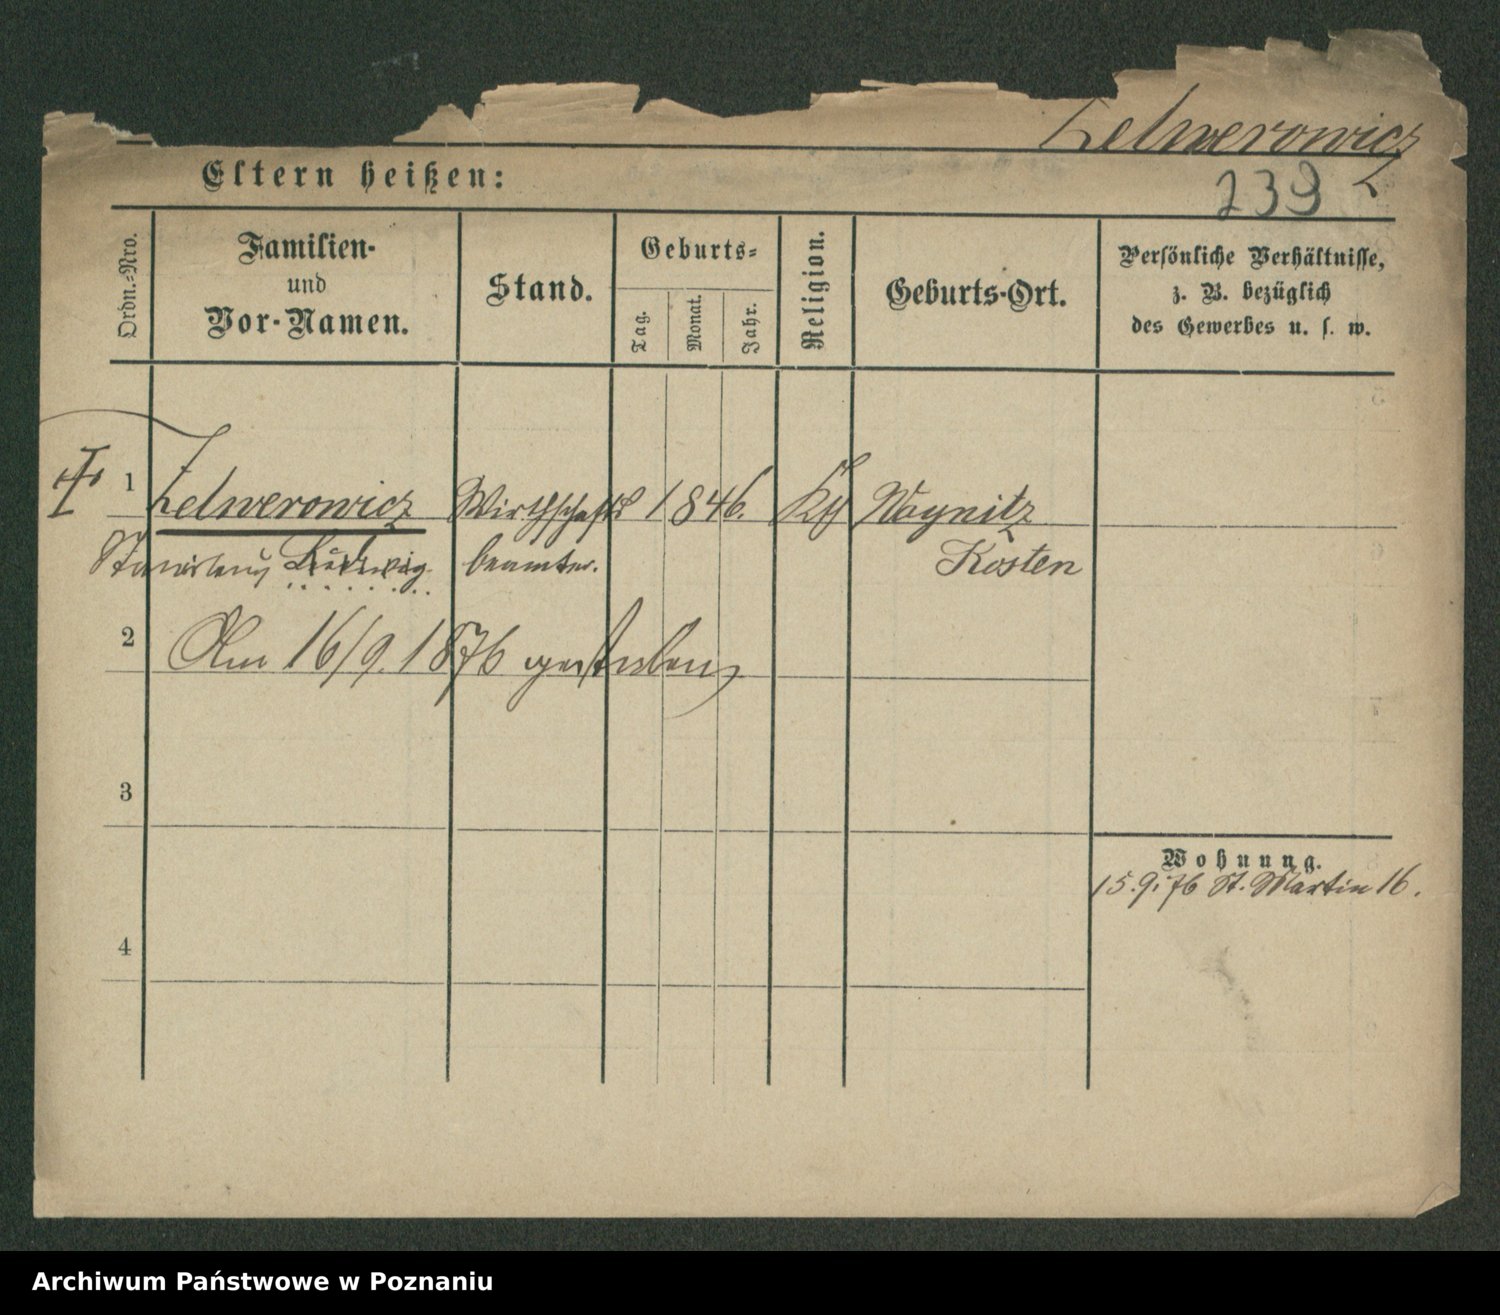 Zelwerowicz
Eltern heißen:
239
Ordn.-Nro.
Familien-
und
Vor-Namen.
Stand.
Geburts-
Tag.
Monat.
Jahr.
Religion.
Geburts-Ort.
Persönliche Verhältnisse,
z. B. bezüglich
des Gewerbes u. s. w.
1 Zelwerowicz Wirthschafts 1846. Kth Woynitz
Stanislaus Ludwig beamter. Kosten
2 Am 16/9. 1876 gestorben
3
Wohnung.
15.9.76 St. Martin 16.
4
Archiwum Państwowe w Poznaniu